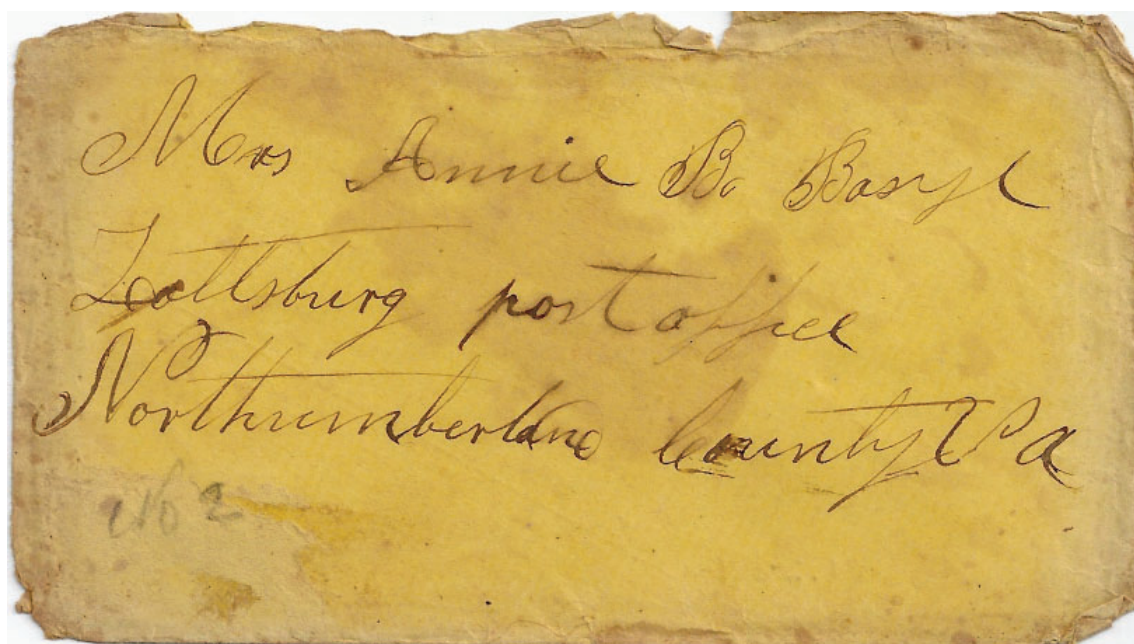 Mrs Annie B. Basye
Lottsburg post office
Northumberland County Va
No 2